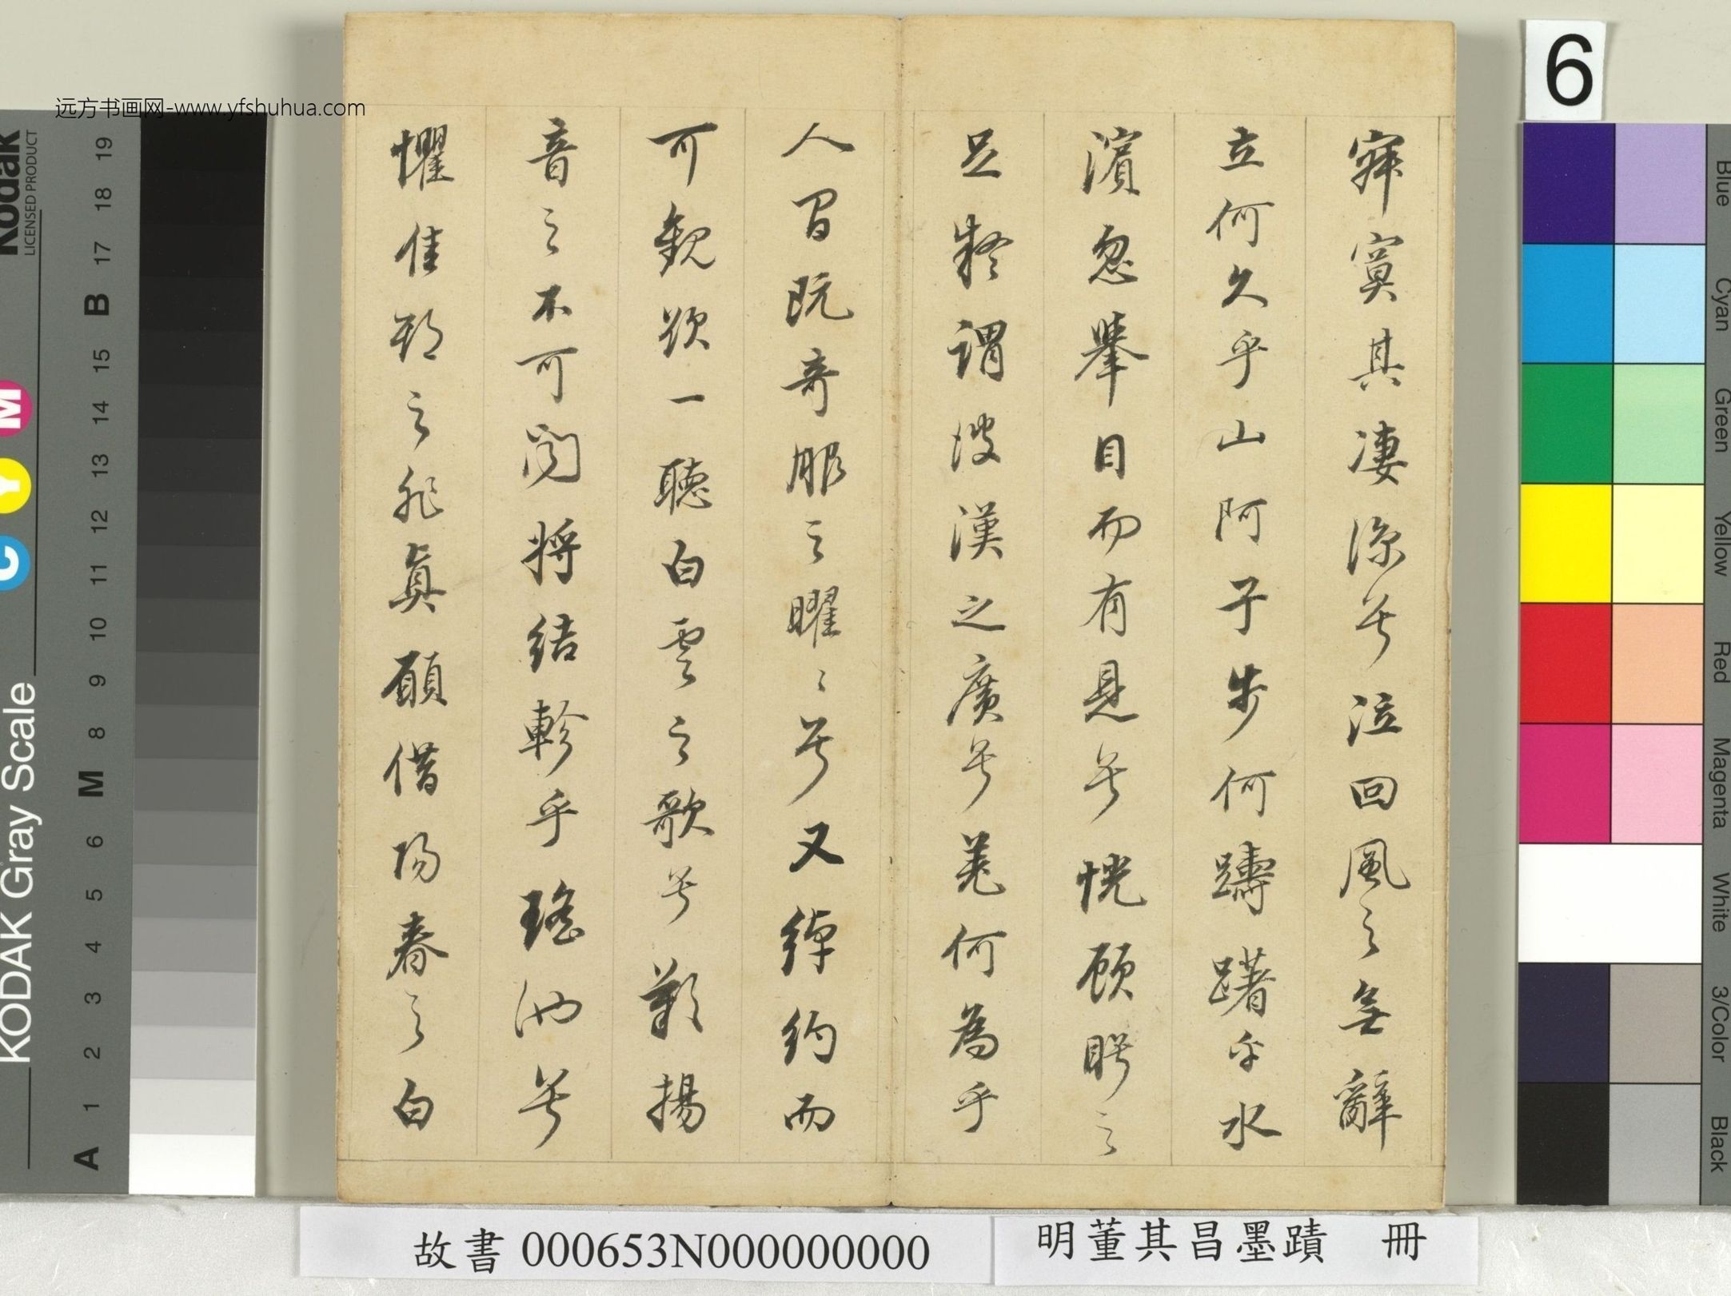 寂寞其凄涼兮泣回風之無辭
立何久乎山阿子步何躊躇乎水
濱忽舉目而有見兮恍顧眄之
足疑謂彼漢之廣兮羌何為乎
人間既奇服之曜〻兮又綽約而
可觀欲一聽白雲之歌兮歎揚
音之不可聞將結軫乎瑤池兮
懼佳期之非真願借陽春之白
远方书画网-www.yfshuhua.com
6
明董其昌墨蹟 冊
故書 000653N000000000
KODAK Gray Scale
Kodak
LICENSED PRODUCT
C Y M
A 1 2 3 4 5 6 M 8 9 10 11 12 13 14 15 B 17 18 19
Blue
Cyan
Green
Yellow
Red
Magenta
White
3/Color
Black